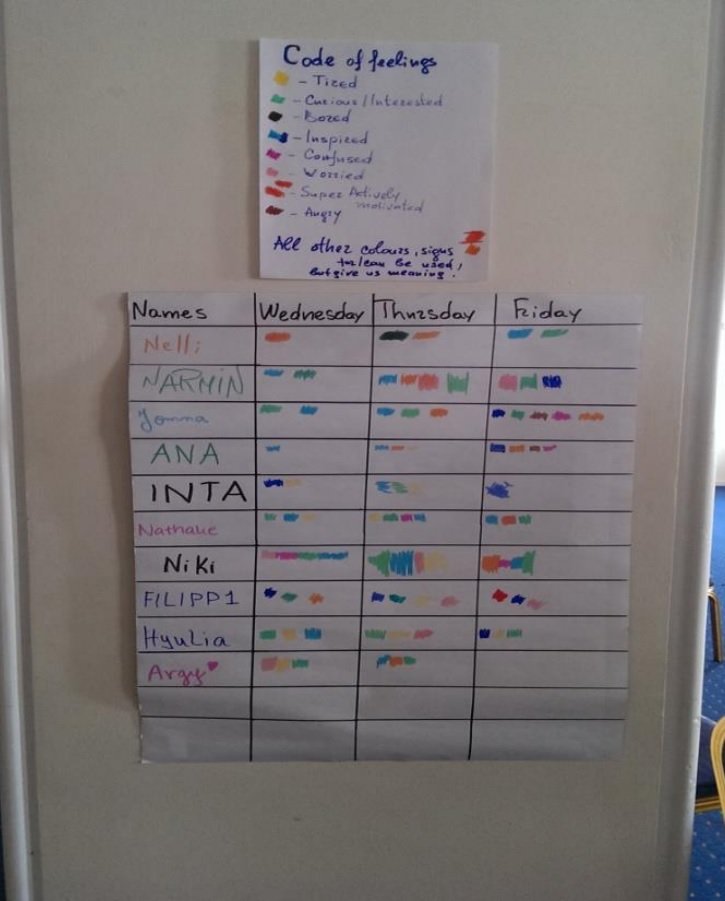 Code of feelings
- Tired
- Curious/Interested
- Bored
- Inspired
- Confused
- Worried
- Super Actively
motivated
- Angry
All other colours, signs
can be used,
but give us meaning!
Names Wednesday Thursday Friday
Nelli
NARMIN
ANA
INTA
Nathalie
Niki
FILIPP1
Hyulia
Argy